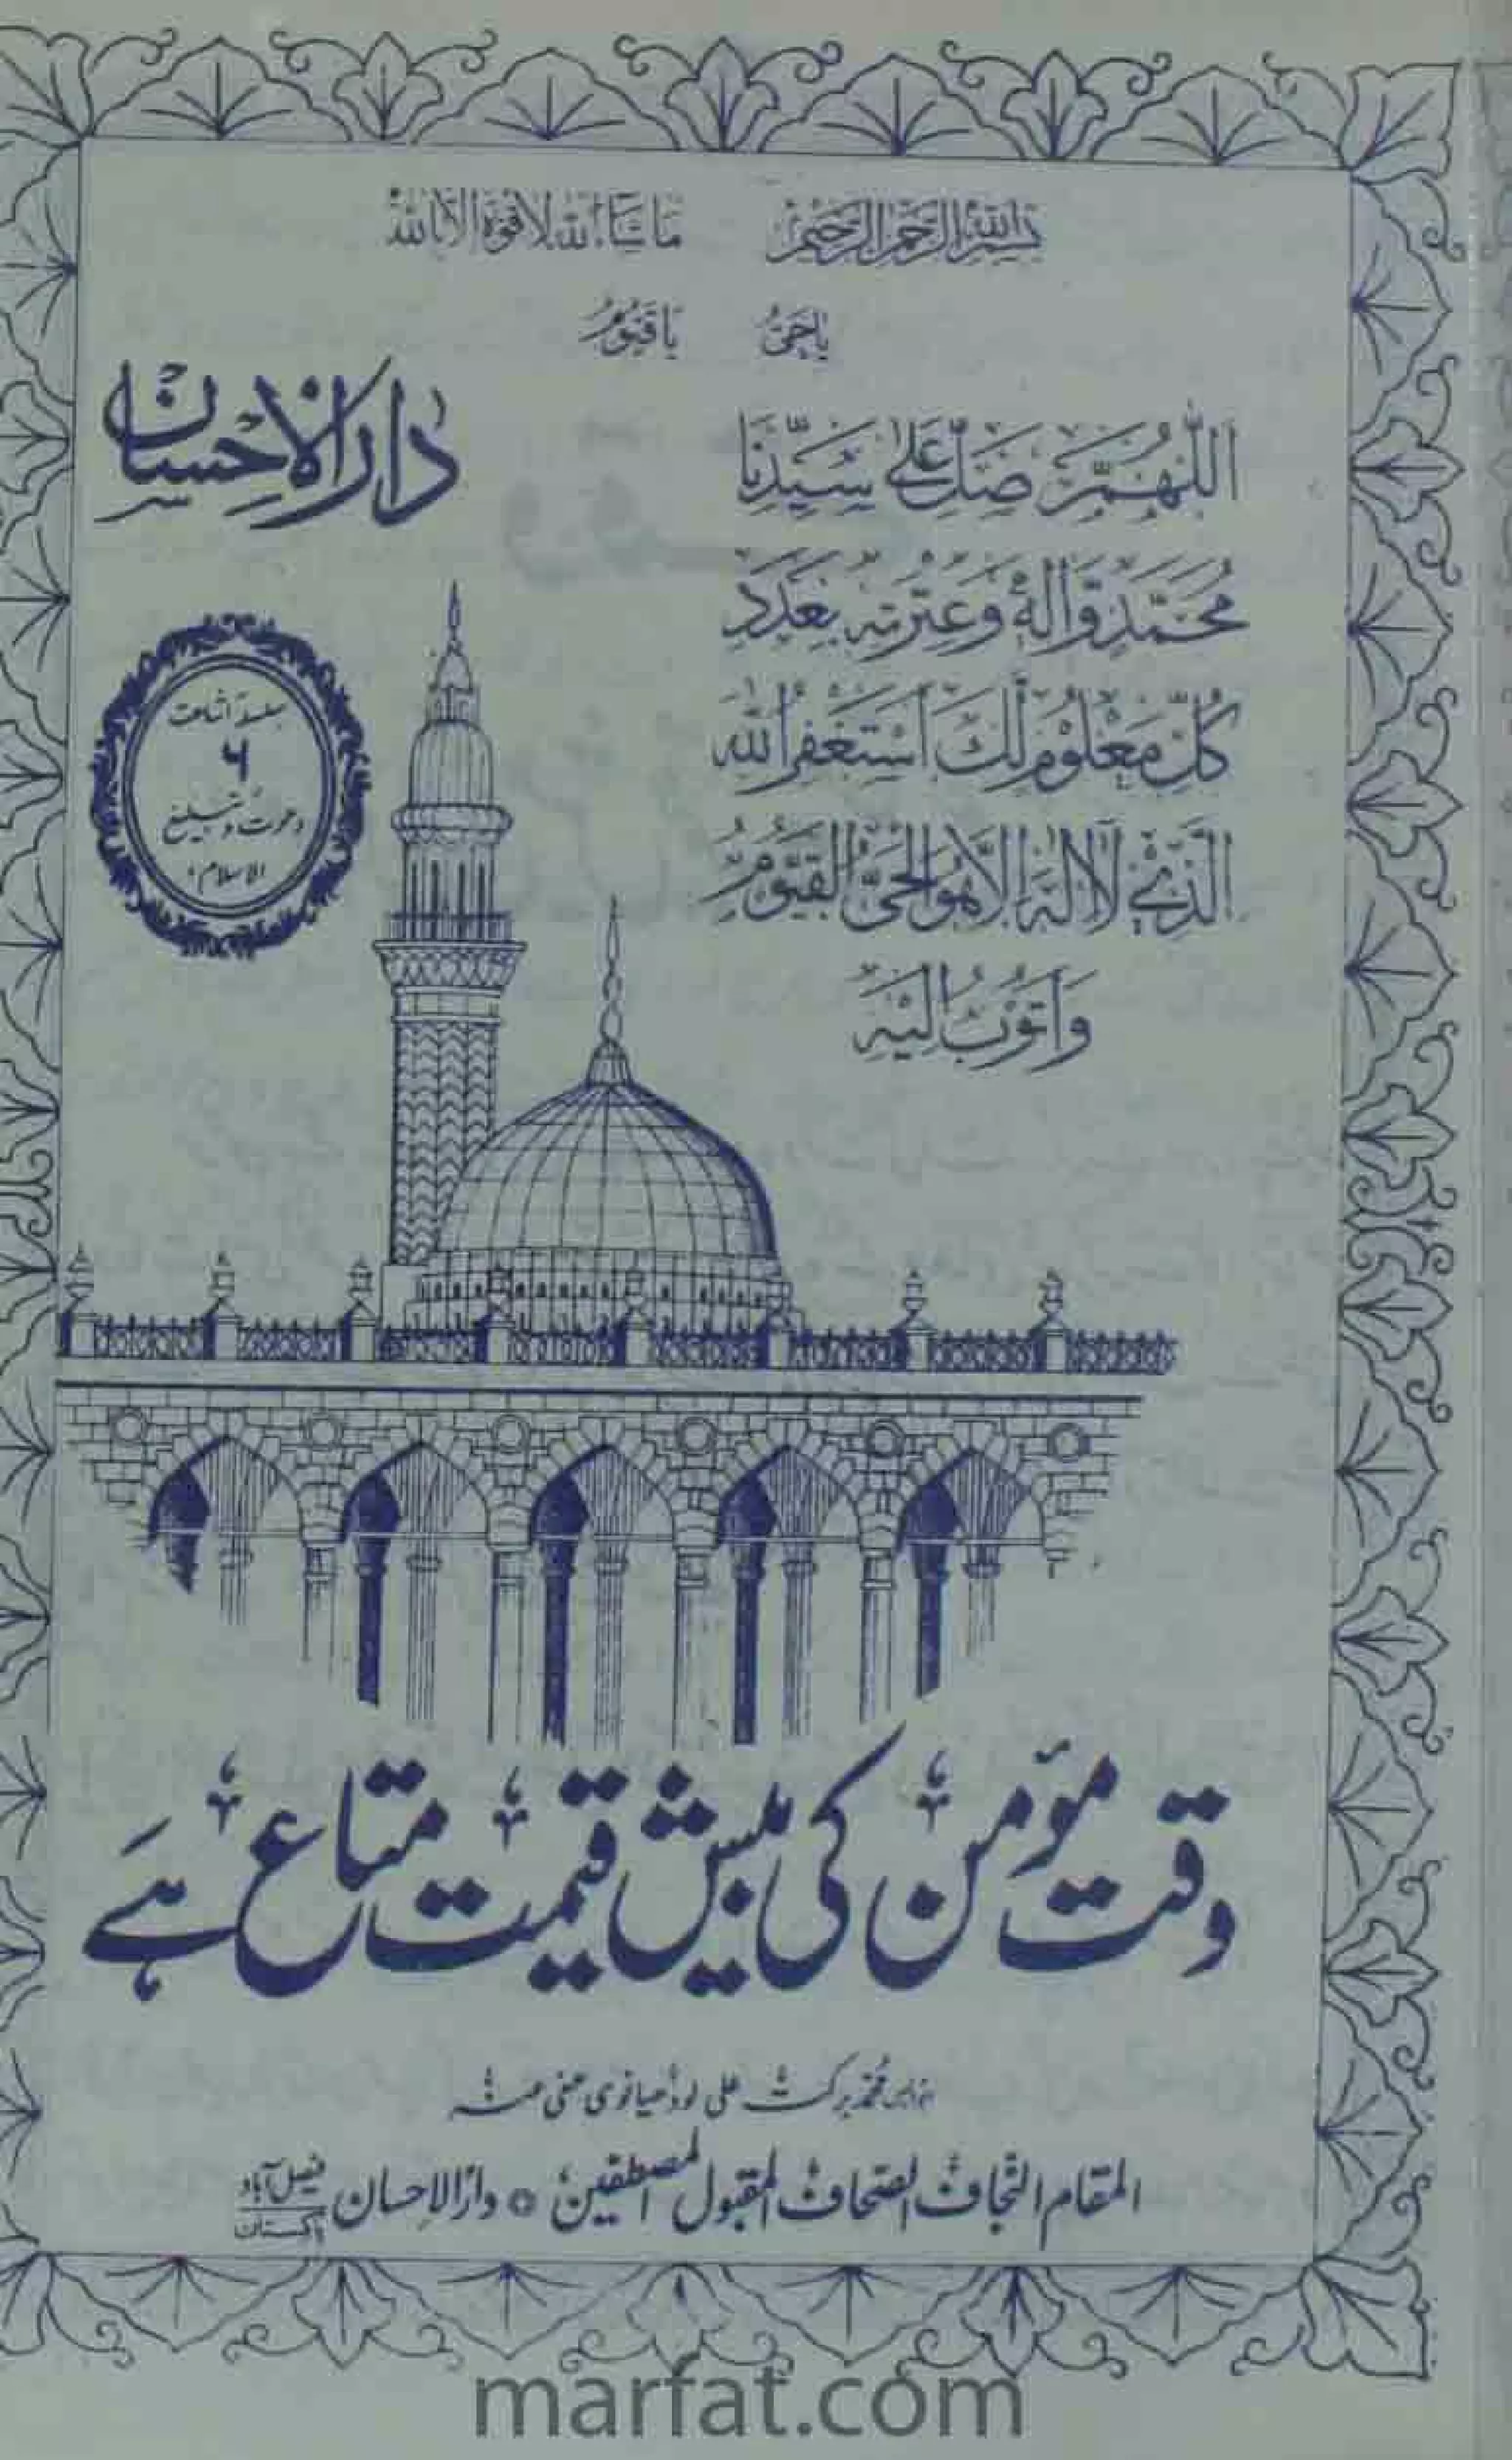 بِسْمِ اللهِ الرَّحْمٰنِ الرَّحِيْمِ مَا شَآءَ اللهُ لَا قُوَّةَ اِلَّا بِاللهِ
يَا حَيُّ يَا قَيُّوْمُ
دارُالاِحسان
اَللّٰهُمَّ صَلِّ عَلٰى سَيِّدِنَا
مُحَمَّدٍ وَّاٰلِهٖ وَعِتْرَتِهٖ بِعَدَدِ
كُلِّ مَعْلُوْمٍ لَّكَ اَسْتَغْفِرُ اللهَ
الَّذِيْ لَآ اِلٰهَ اِلَّا هُوَ الْحَيُّ الْقَيُّوْمُ
وَاَتُوْبُ اِلَيْهِ
سلسلۂ اشاعت
٦
دعوت و تبلیغ
الاسلام
وقت مؤمن کی بیش قیمت متاع ہَے
محمّد برکت علی لودھیانوی عفی عنہ
المقام النجاف الصحاف المقبول المصطفین ۞ دارُالاِحسان فیصل آباد
پاکستان
marfat.com